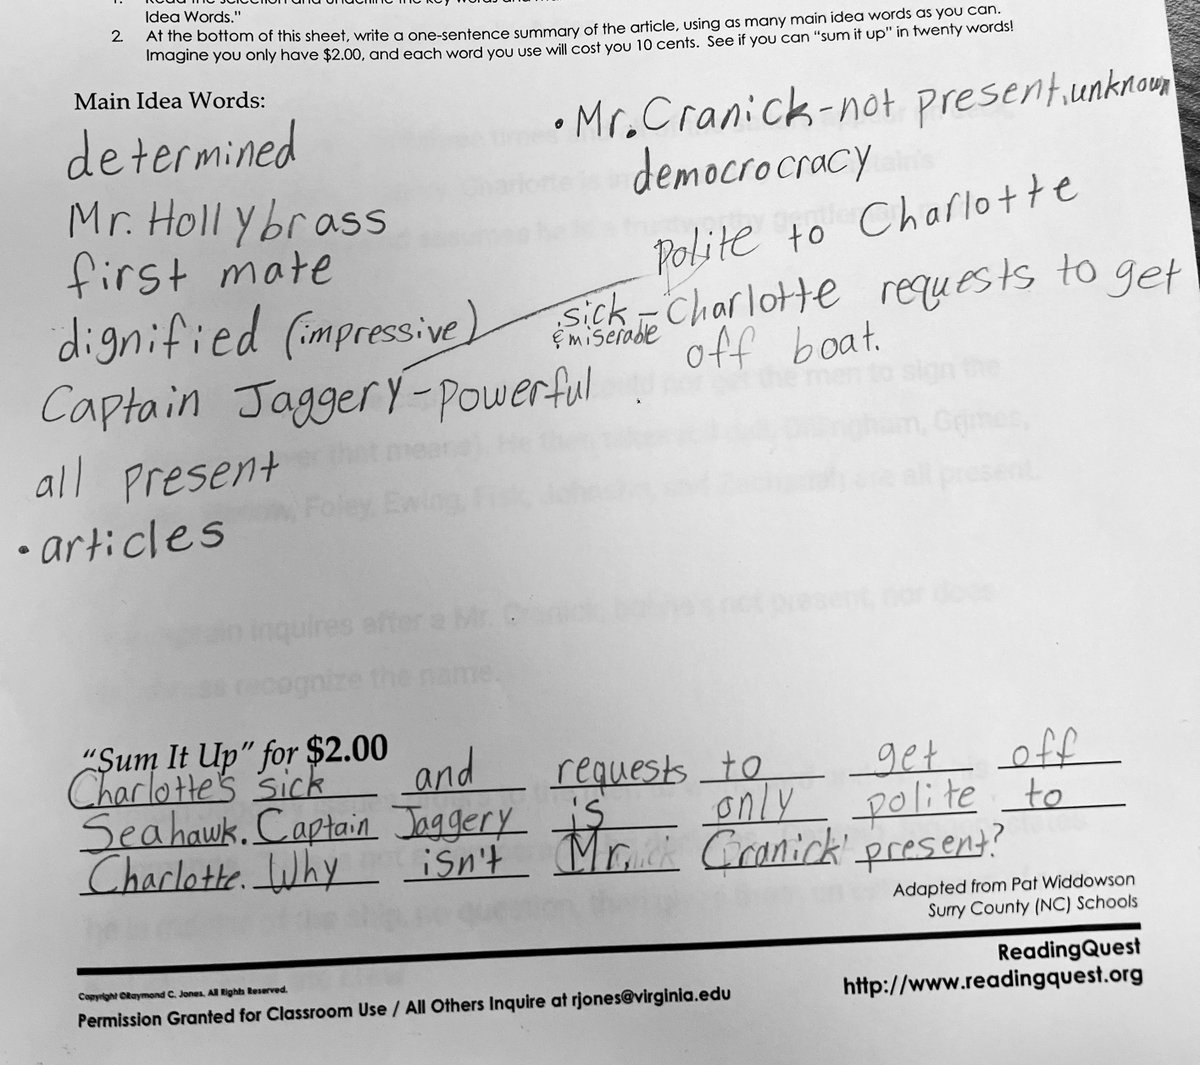 Idea Words."
2. At the bottom of this sheet, write a one-sentence summary of the article, using as many main idea words as you can.
Imagine you only have $2.00, and each word you use will cost you 10 cents. See if you can "sum it up" in twenty words!
Main Idea Words:
determined
Mr. Hollybrass
first mate
dignified (impressive)
Captain Jaggery-powerful
all present
• articles
• Mr. Cranick-not present, unknown
democrocracy
polite to Charlotte
sick - Charlotte requests to get
& miserable off boat.
"Sum It Up" for $2.00
Charlotte's sick and requests to get off
Seahawk. Captain Jaggery is only polite to
Charlotte. Why isn't Mr. Cranick present?
Adapted from Pat Widdowson
Surry County (NC) Schools
ReadingQuest
http://www.readingquest.org
Copyright ©Raymond C. Jones. All Rights Reserved.
Permission Granted for Classroom Use / All Others Inquire at rjones@virginia.edu